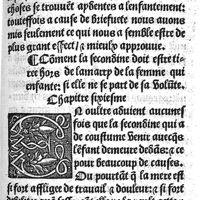 choses se trouuẽt apsentes a lenfantement:
touteffois a cause de briefuete nous auons
mis seulement ce qui nous a semble estre de
plus grant effect/ & mieulx approuue.
¶ Cõment la secondine doit estre ti
ree hors de lamarry de la femme qui
enfante: si elle ne se part de sa volũte.
Chapitre sixiesme
EN oultre aduient aucunes
fois que la secondine qui a
de coustume venir auecqs
lẽfant demeure dedãs: & ce
pour beaucoup de causes.
Ou pourtãt q̃ la mere est
si fort affligee de trauail & douleur: & si fort